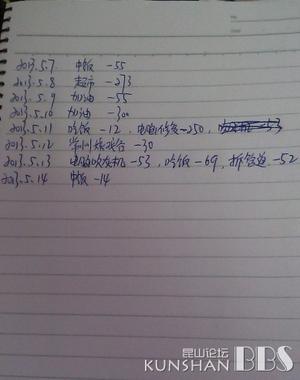 2013.5.7 中饭 -55
2013.5.8 超市 -273
2013.5.9 加油 -55
2013.5.10 加油 -300
2013.5.11 吃饭 -12, 电脑修复 -250,
2013.5.12 常州 -30
2013.5.13 电脑吹灰机 -53, 吃饭 -69, 拆管道 -52
2013.5.14 中饭 -14
昆山论坛
KUNSHAN BBS